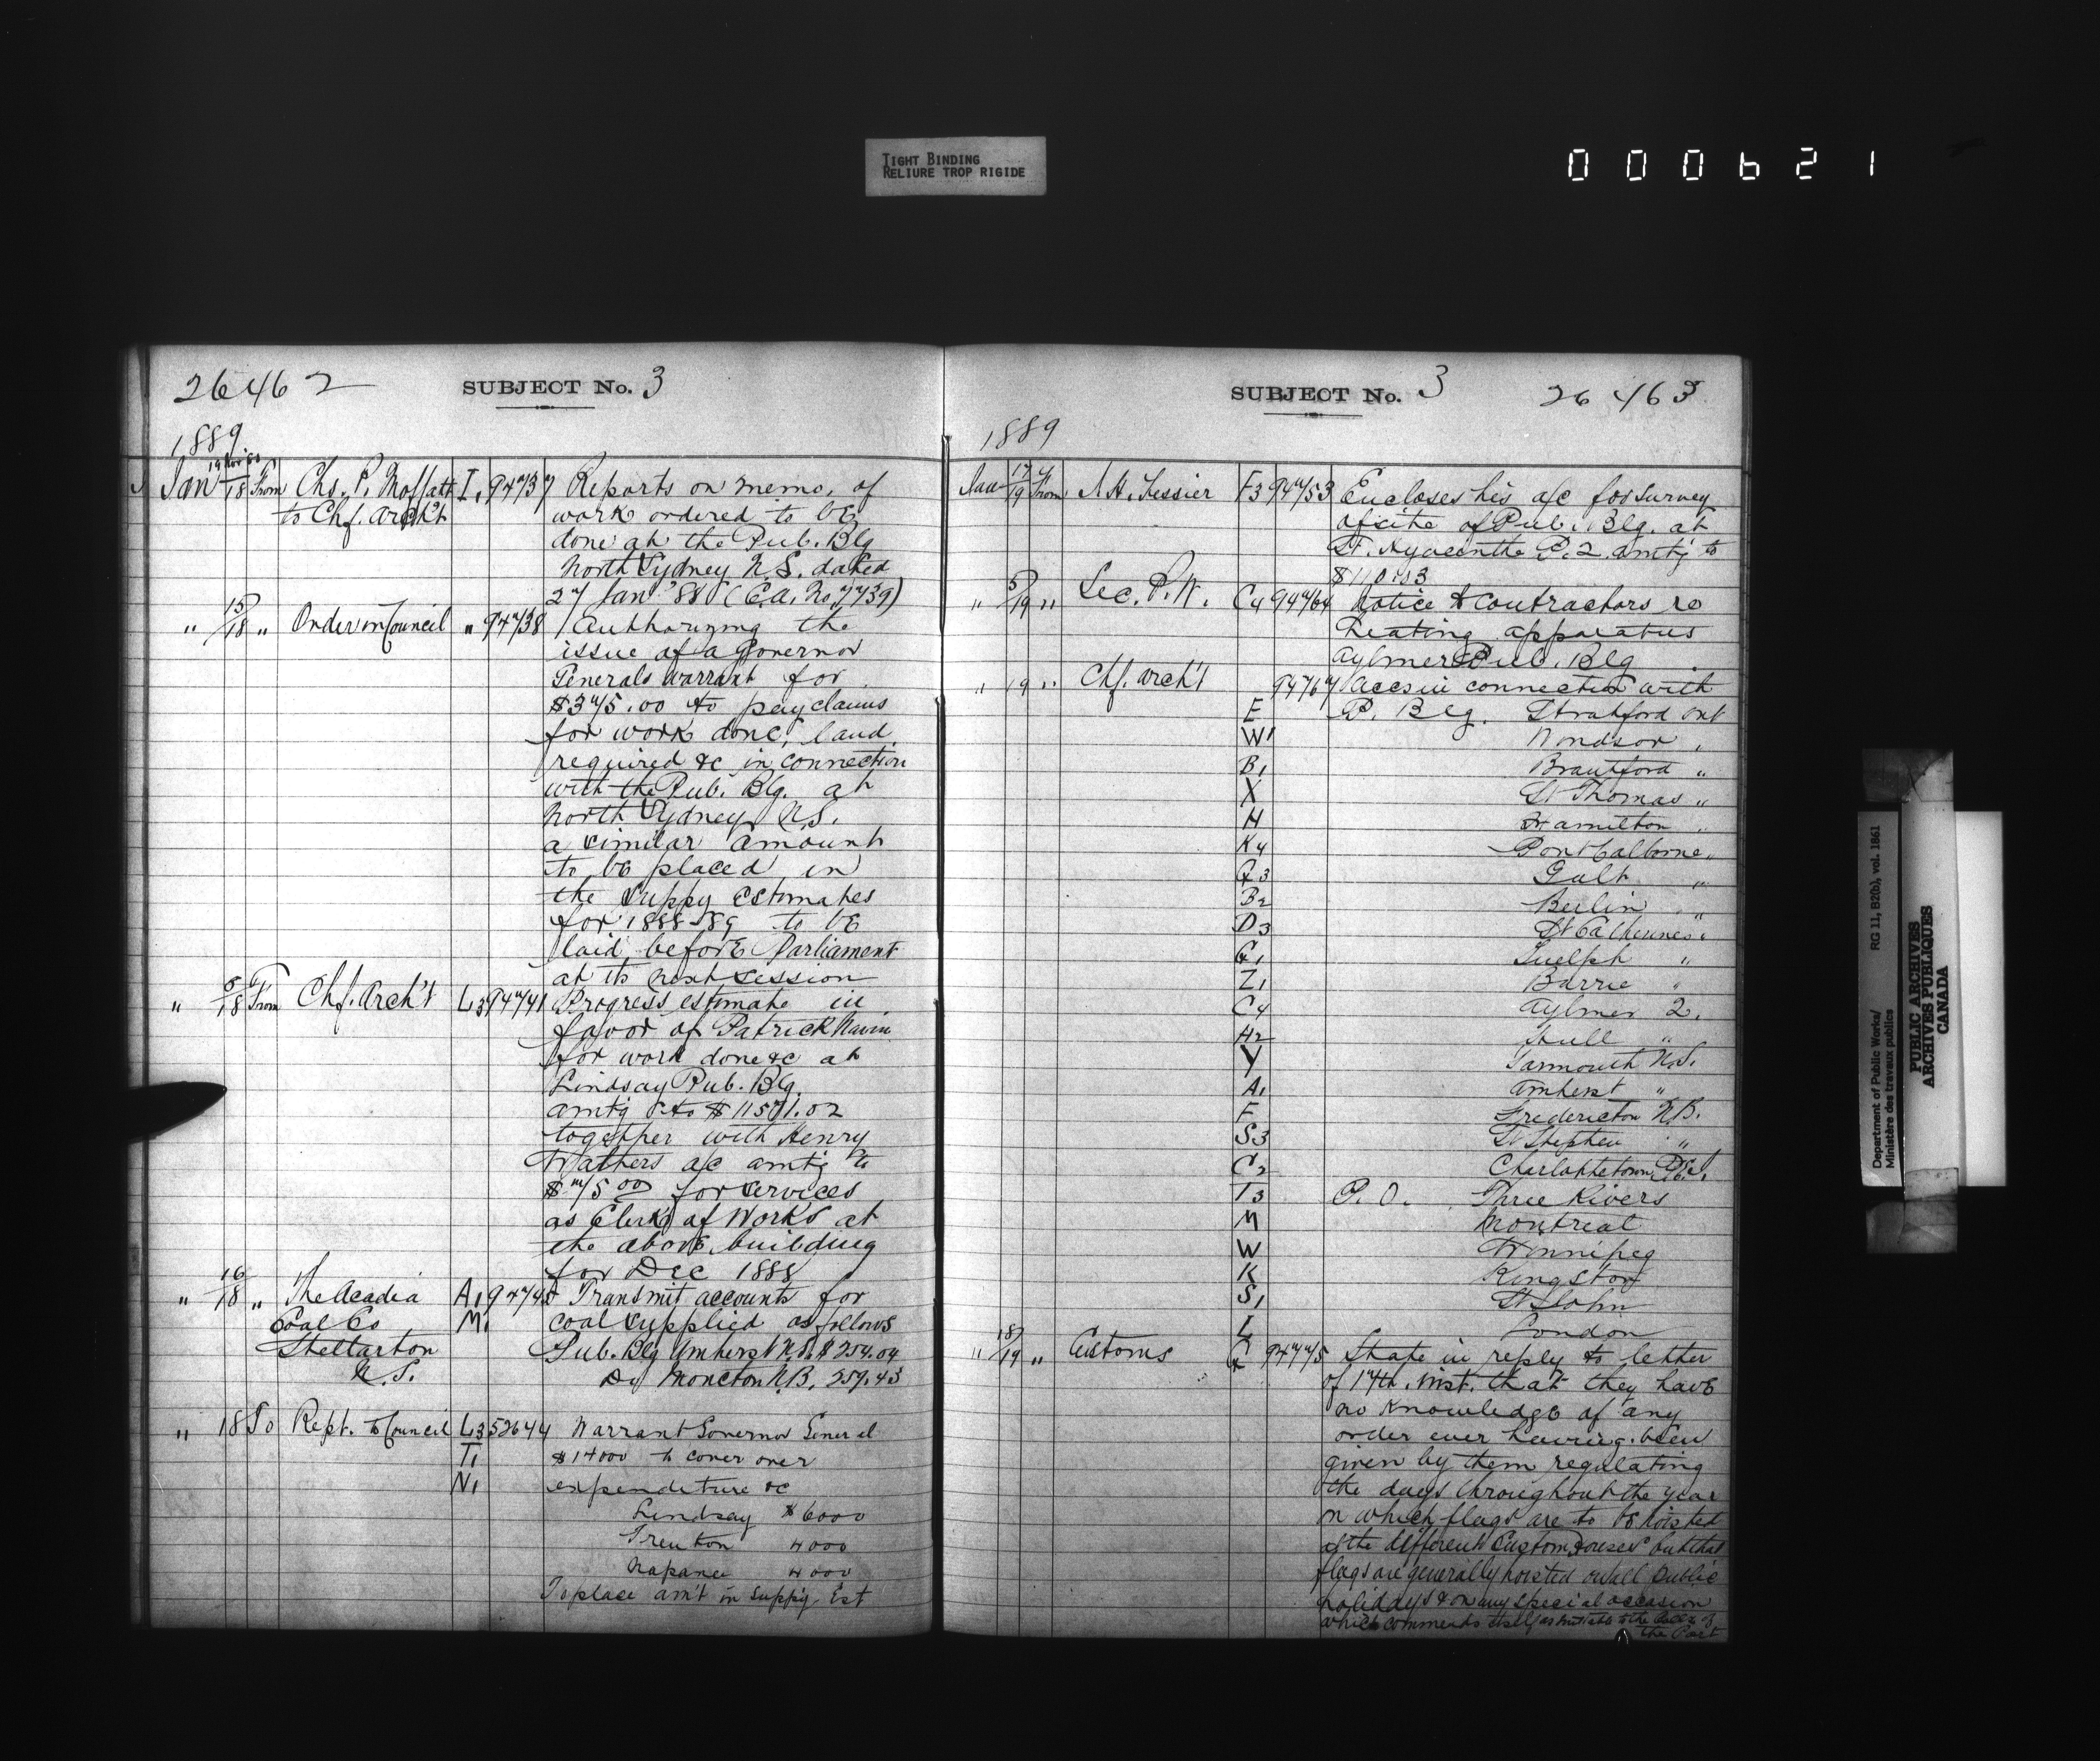 TIGHT BINDING
RELIURE TROP RIGIDE
000621
26462 SUBJECT No. 3
1889
Jan 19 Nov 88/18 From Chs. P. Moffatt I, 94737 Reports on memo. of
to Chf. Arch't work ordered to be
done at the Pub. Blg
North Sydney N.S. dated
27 Jan '88 (E.A. No 7739)
" 15/18 " Order in Council " 94738 Authorizing the
issue of a Governor
Generals warrant for
$375.00 to pay claims
for work done, land
required &c in connection
with the Pub. Blg. at
North Sydney N.S.
a similar amount
to be placed in
the Suppy Estimates
for 1888-89 to be
laid before Parliament
at its next session
" 5/18 From Chf. Arch't L3 94741 Progress estimate in
favor of Patrick Navin
for work done &c at
Lindsay Pub. Blg.
amtg to $1151.02
together with Henry
Walthers a/c amtg to
$75.00 for services
as Clerk of Works at
the above building
for Dec 1888
" 16/18 " The Acadia A1 94745 Transmit accounts for
Coal Co M. coal supplied as follows
Stellarton Pub. Blg Amherst N.S. $254.04
N.S. Do Moncton N.B. 259.43
" 18 To Rept. to Council L3 52644 Warrant Governor General
T1 $14000 to cover over
N1 expenditure &c
Lindsay $6000
Trenton 4000
Napanee 4000
To place am't in Suppy. Est
SUBJECT No. 3 26463
1889
Jan 17/19 From A.H. Tessier F3 94753 Encloses his a/c for survey
of site of Pub. Blg. at
St. Hyacinthe P.Q. amtg to
$110.03
" 5/19 " Sec. P.W. C4 94764 Notice to contractors re
heating apparatus
Aylmer Pub. Blg
" 19 " Chf. Arch't 94767 Accs in connection with
E P. Blg. Stratford Ont
W1 Windsor "
B1 Brantford "
X St Thomas "
H Hamilton "
K4 Port Colborne "
G3 Galt "
B2 Berlin "
D3 St Catherines "
G1 Guelph "
Z1 Barrie "
C4 Aylmer Q.
H2 Hull "
Y Yarmouth N.S.
A1 Amherst "
F Fredericton N.B.
S3 St Stephen "
C2 Charlottetown P.E.I.
T3 P.O. Three Rivers
M Montreal
W Winnipeg
K Kingston
S1 St John
L London
" 18/19 " Customs G 94775 State in reply to letter
of 17th. inst. that they have
no knowledge of any
order ever having been
given by them regulating
the days throughout the year
on which flags are to be hoisted
at the different Custom Houses but that
flags are generally hoisted on all public
holidays & on any special occasion
which commends itself as suitable to the Coll'r of
the Port
Department of Public Works/
Ministère des travaux publics
RG 11, B2(b), vol. 1861
PUBLIC ARCHIVES
ARCHIVES PUBLIQUES
CANADA